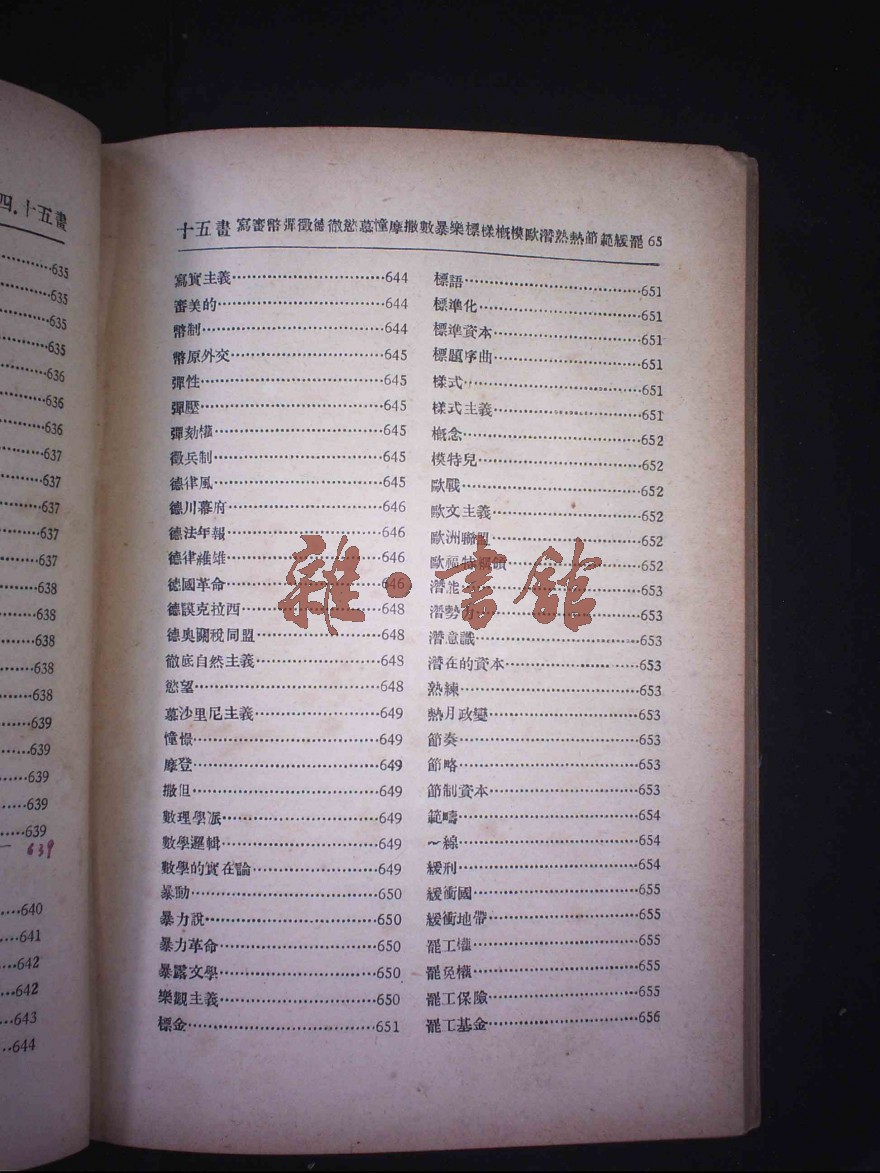 四.十五畫
635
635
635
635
636
636
636
637
637
637
637
637
638
638
638
638
638
639
639
639
639
639
639
640
641
642
642
643
644
十五畫 寫審幣彈徵德徹慾墓憧摩撒數暴樂標樣概模歐潛熟熱節範緩罷 65
寫實主義 644
審美的 644
幣制 644
幣原外交 645
彈性 645
彈壓 645
彈劾權 645
徵兵制 645
德律風 645
德川幕府 646
德法年報 646
德律維雄 646
德國革命 646
德謨克拉西 648
德奧關稅同盟 648
徹底自然主義 648
慾望 648
墓沙里尼主義 649
憧憬 649
摩登 649
撒但 649
數理學派 649
數學邏輯 649
數學的實在論 649
暴動 650
暴力說 650
暴力革命 650
暴露文學 650
樂觀主義 650
標金 651
標語 651
標準化 651
標準資本 651
標題序曲 651
樣式 651
樣式主義 651
概念 652
模特兒 652
歐戰 652
歐文主義 652
歐洲聯盟 652
歐福特 652
潛能 653
潛勢力 653
潛意識 653
潛在的資本 653
熟練 653
熱月政變 653
節奏 653
節略 653
節制資本 653
範疇 654
～線 654
緩刑 654
緩衝國 655
緩衝地帶 655
罷工權 655
罷免權 655
罷工保險 655
罷工基金 656
雜·書館